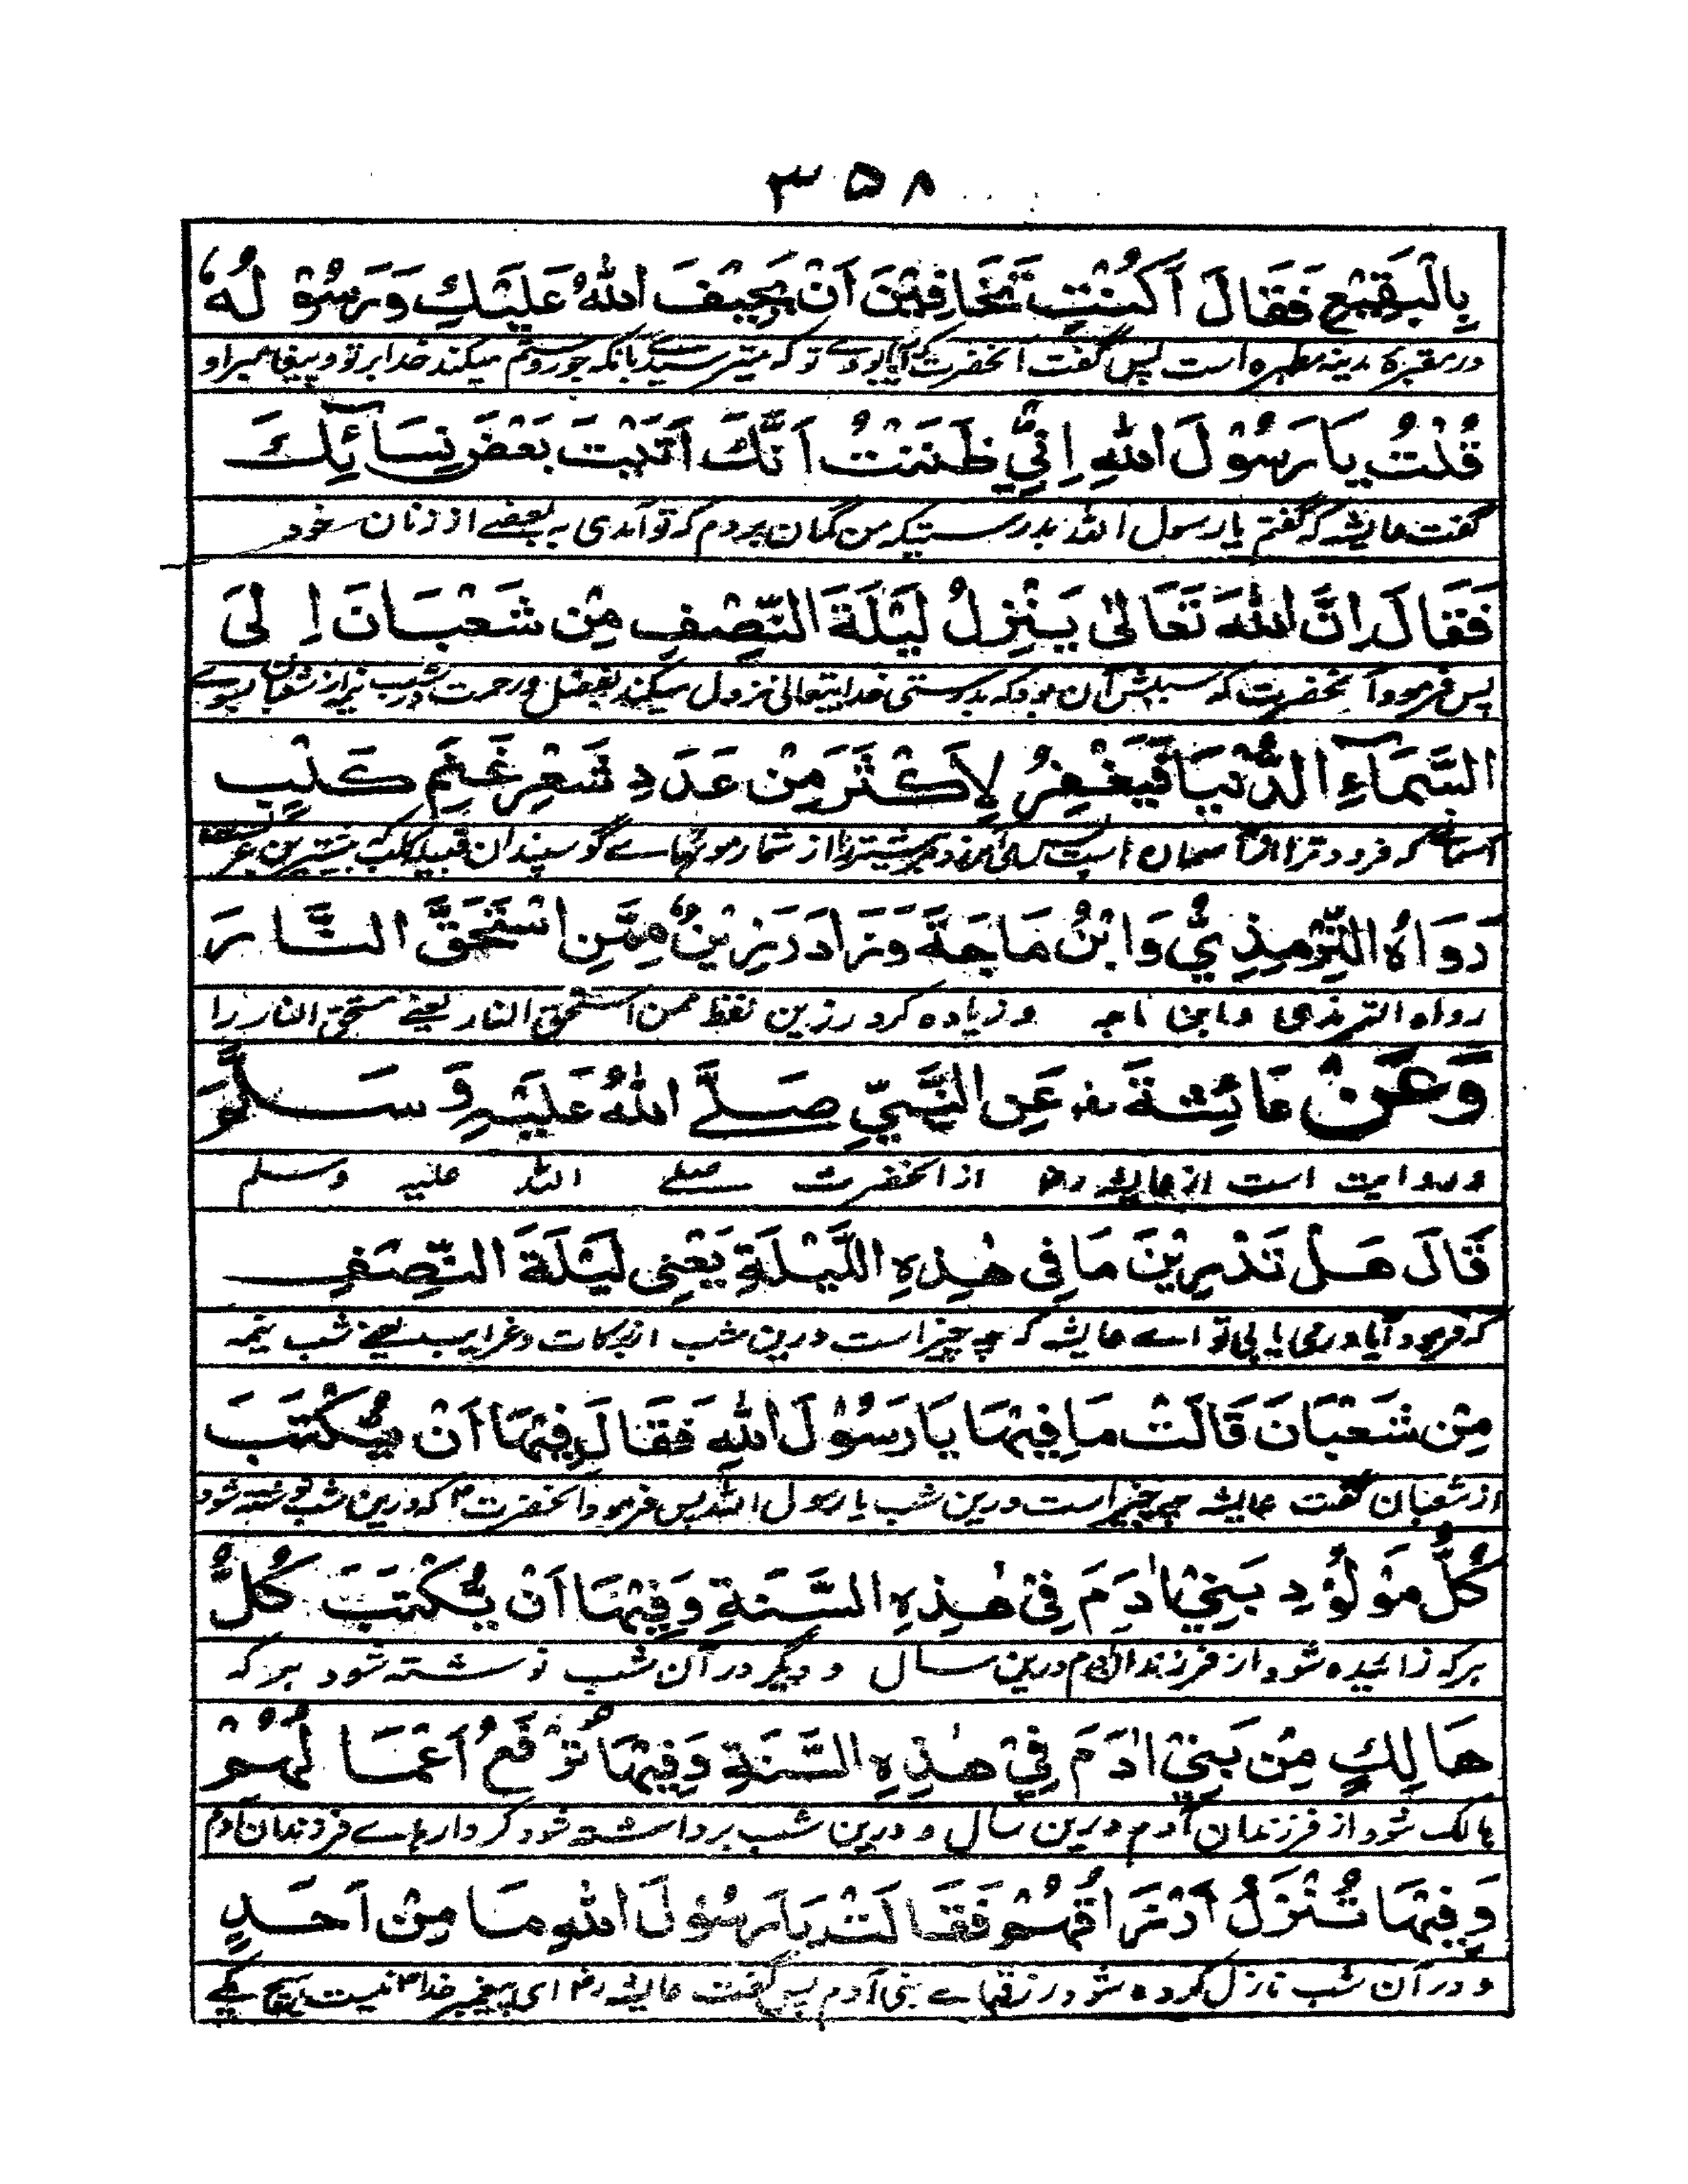 ۳۵۸
بِالْبَقِيْعِ فَقَالَ اَكُنْتِ تَخَافِيْنَ اَنْ يَحِيْفَ اللّٰهُ عَلَيْكِ وَرَسُوْلُهٗ
در مقبرهٔ مدینه مطهره است پس گفت آنحضرت آیا بودے تو که میترسیدے بآنکه جور و ستم میکند خدا بر تو و پیغامبر او
قُلْتُ يَا رَسُوْلَ اللّٰهِ اِنِّيْ ظَنَنْتُ اَنَّكَ اَتَيْتَ بَعْضَ نِسَآئِكَ
گفت عایشه که گفتم یا رسول اللّٰه بدرستیکه من گمان بردم که تو آمدی به بعضے از زنان خود
فَقَالَ اِنَّ اللّٰهَ تَعَالٰى يَنْزِلُ لَيْلَةَ النِّصْفِ مِنْ شَعْبَانَ اِلَى
پس فرمود آنحضرت که سببش آن بود که بدرستی خدایتعالی نزول میکند بفضل و رحمت در شب نیمه از شعبان بسوے
السَّمَآءِ الدُّنْيَا فَيَغْفِرُ لِاَكْثَرَ مِنْ عَدَدِ شَعْرِ غَنَمِ كَلْبٍ
که فرودتر از آسمان است پس می آمرزد از شمار مویهاے گوسپندان قبیله کلب
رَوَاهُ التِّرْمِذِيُّ وَابْنُ مَاجَةَ وَزَادَ رَزِيْنٌ مِمَّنِ اسْتَحَقَّ النَّارَ
رواه الترمذی وابن ماجه و زیاده کرد رزین لفظ ممن استحق النار یعنے مستحق النار را
وَعَنْ عَائِشَةَ رضـ عَنِ النَّبِيِّ صَلَّے اللّٰهُ عَلَيْهِ وَسَلَّمَ
و روایت است از عایشه رضـ از آنحضرت صلے اللّٰه علیه وسلم
قَالَ هَلْ تَدْرِيْنَ مَا فِى هٰذِهِ اللَّيْلَةِ يَعْنِى لَيْلَةَ النِّصْفِ
که فرمود آیا در می یابی تو اے عایشه که چه چیز است درین شب از برکات و غرایب یعنے شب نیمه
مِنْ شَعْبَانَ قَالَتْ مَا فِيْهَا يَا رَسُوْلَ اللّٰهِ فَقَالَ فِيْهَا اَنْ يُّكْتَبَ
از شعبان گفت عایشه چه چیز است درین شب یا رسول اللّٰه پس فرمود آنحضرت ؐ که درین شب نوشته شود
كُلُّ مَوْلُوْدِ بَنِيْ اٰدَمَ فِىْ هٰذِهِ السَّنَةِ وَفِيْهَا اَنْ يُّكْتَبَ كُلُّ
هر که زائیده شود از فرزندان آدم درین سال و دیگر در آن شب نوشته شود هر که
هَالِكٍ مِنْ بَنِيْ اٰدَمَ فِيْ هٰذِهِ السَّنَةِ وَفِيْهَا تُرْفَعُ اَعْمَالُهُمْ
هالک شود از فرزندان آدم درین سال و درین شب برداشته شود کردارهاے فرزندان آدم
وَفِيْهَا تُنْزَلُ اَرْزَاقُهُمْ فَقَالَتْ يَا رَسُوْلَ اللّٰهِ مَا مِنْ اَحَدٍ
و در آن شب نازل کرده شود رزقهاے بنی آدم پس گفت عایشه رضـ ای پیغمبر خدا ؐ نیست هیچ یکے